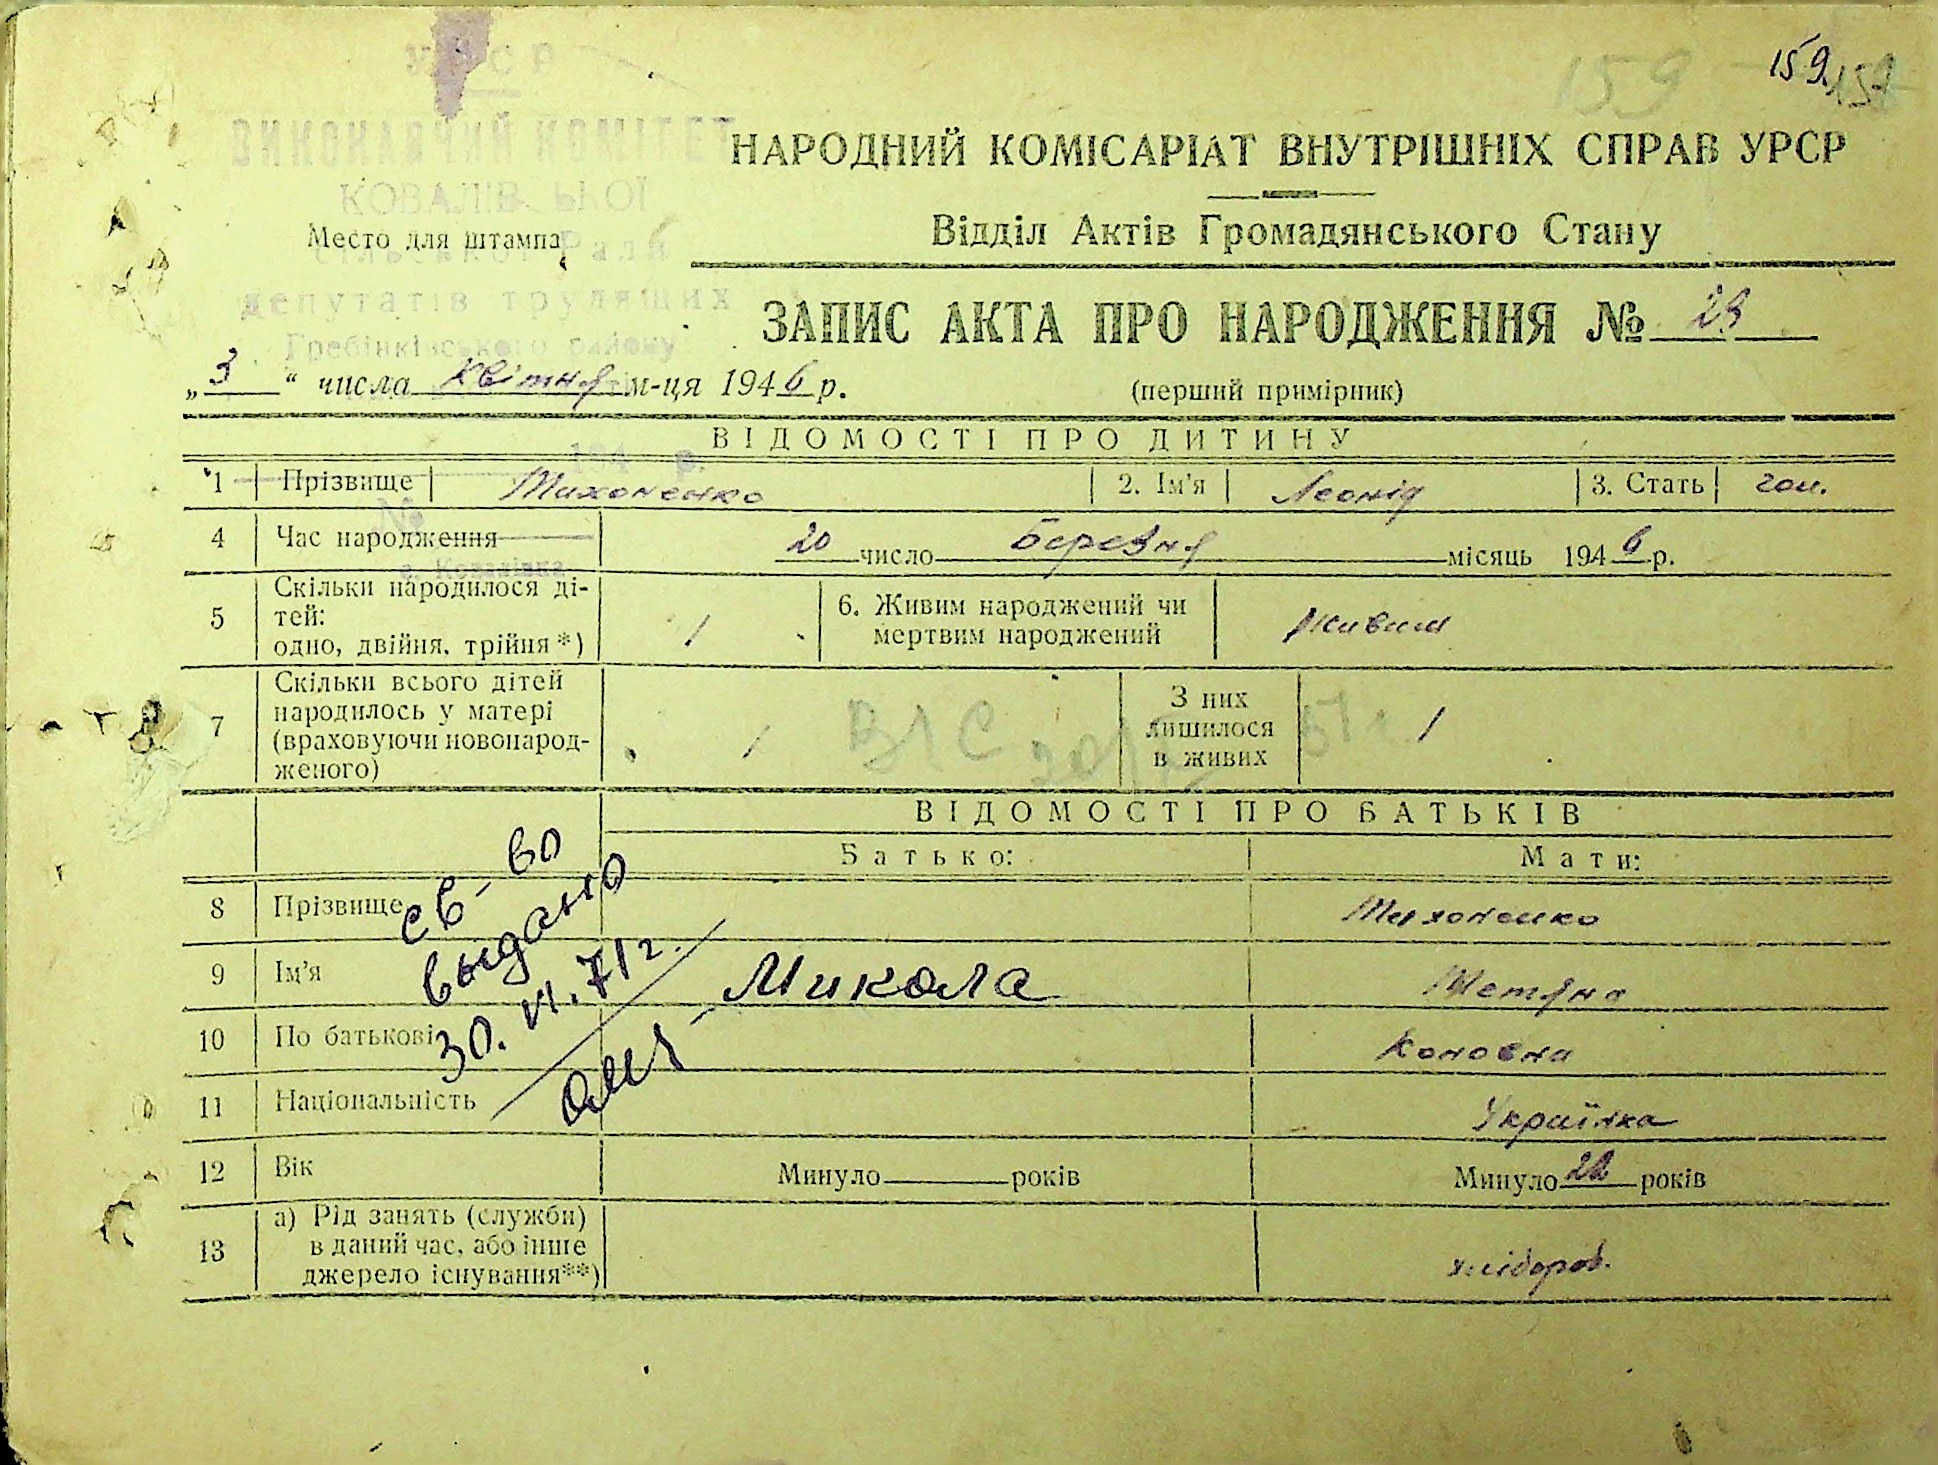 159.
159
157
УРСР
ВИКОНАВЧИЙ КОМІТЕТ
КОВАЛІВСЬКОЇ
сільської Ради
депутатів трудящих
Гребінківського району
194 р.
№
с. Ковалівка
Место для штампа
НАРОДНИЙ КОМІСАРІАТ ВНУТРІШНІХ СПРАВ УРСР
Відділ Актів Громадянського Стану
ЗАПИС АКТА ПРО НАРОДЖЕННЯ № 23
„3“ числа квітня м-ця 1946 р.
(перший примірник)
ВІДОМОСТІ ПРО ДИТИНУ
1 Прізвище Тихоненко 2. Ім'я Леонід 3. Стать чол.
4 Час народження 20 число березня місяць 1946 р.
5 Скільки народилося ді-
тей:
одно, двійня, трійня *) 1
6. Живим народжений чи
мертвим народжений Живим
7 Скільки всього дітей
народилось у матері
(враховуючи новонарод-
женого) 1
З них
лишилося
в живих 1
ВІДОМОСТІ ПРО БАТЬКІВ
Батько: Мати:
8 Прізвище Тихоненко
9 Ім'я Микола Тетяна
10 По батькові Коновна
11 Національність Українка
12 Вік Минуло років Минуло 22 років
13 а) Рід занять (служби)
в даний час, або інше
джерело існування**) хлібороб.
св-во
выдано
30. VI. 71 г.